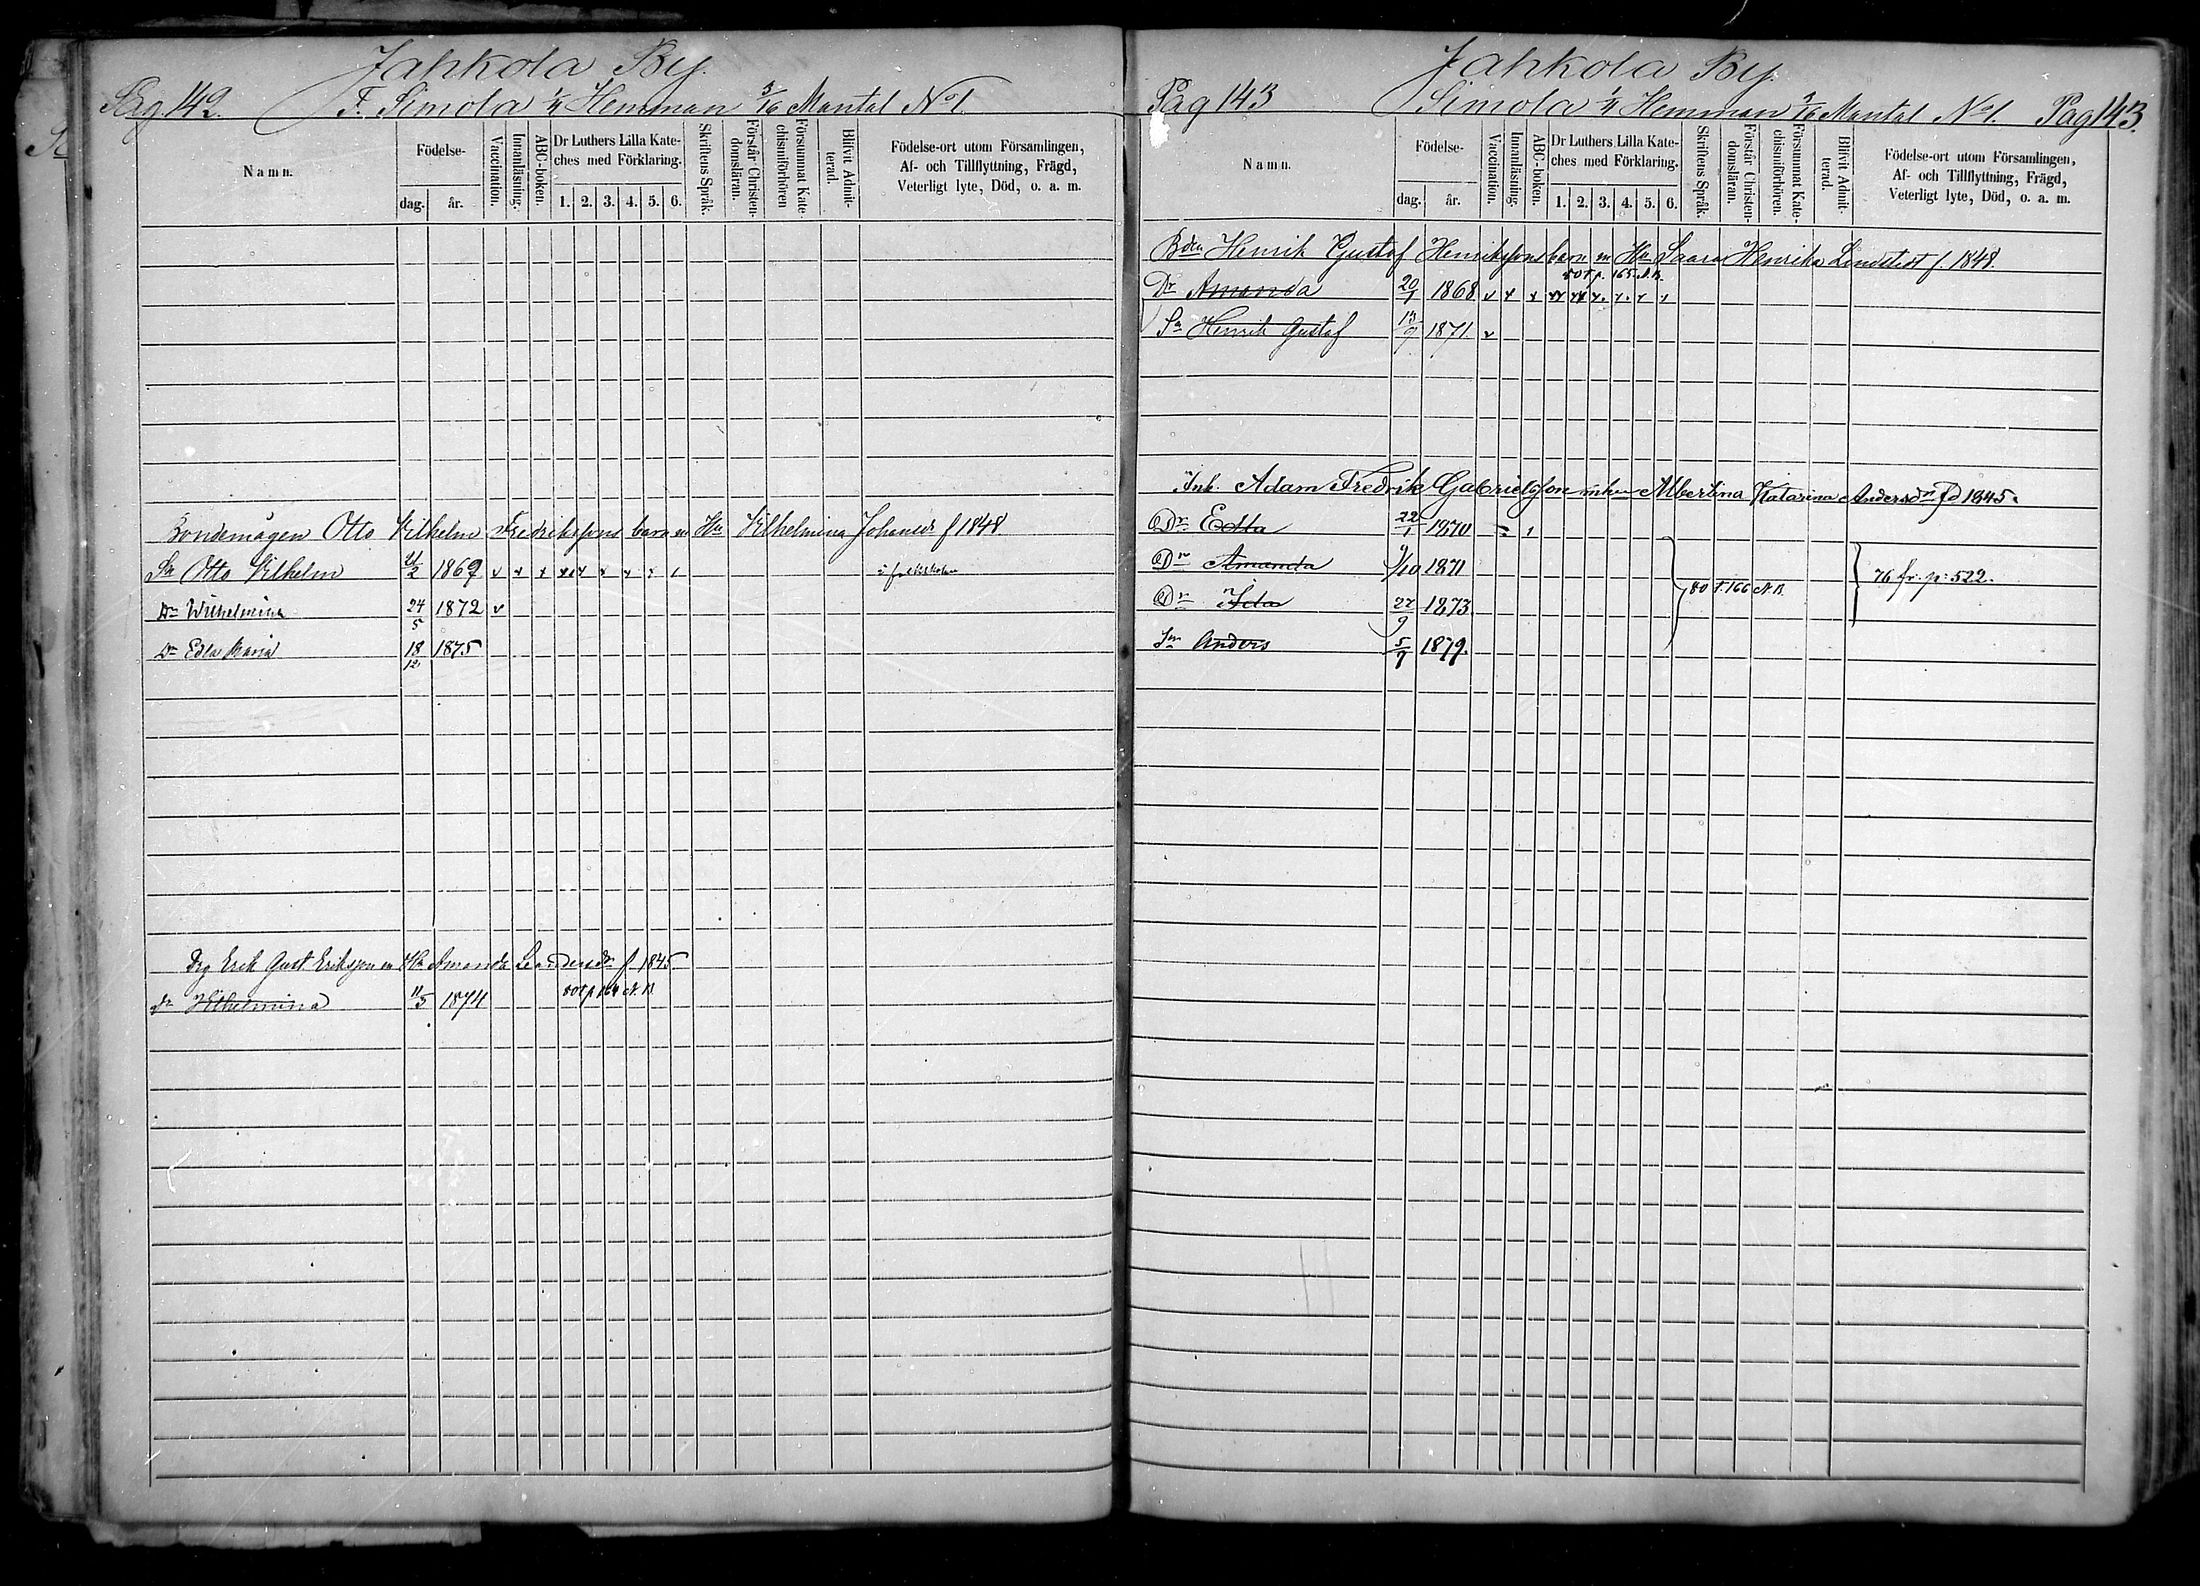 Jahkola By.
Pag. 142. F. Simola 1/4 Hemman 3/16 Mantal No 1.
Namn.
Födelse-
dag. år.
Vaccination.
Innanläsning.
ABC-boken.
Dr Luthers Lilla Kate-
ches med Förklaring.
1. 2. 3. 4. 5. 6.
Skriftens Språk.
Förstår Christen-
domsläran.
Försummat Kate-
chismiförhören
Blifvit Admit-
terad.
Födelse-ort utom Församlingen,
Af- och Tillflyttning, Frägd,
Veterligt lyte, Död, o. a. m.
Bondemågen Otto Vilhelm Fredrikssons barn m Hu Vilhelmina Johansdr f 1848.
Sn Otto Vilhelm 21/2 1869 i folkskolan
Dr Wilhelmina 24/5 1872 v
Dr Edla Maria 18/12 1875
Drg Erik Gust Eriksson m Hu Amanda Leandersdr f 1845
dr Vilhelmina 11/5 1874 80 t p 164 N. B.
Jahkola By.
Pag 143 Simola 1/4 Hemman 3/16 Mantal No 1. Pag 143.
Namn.
Födelse-
dag. år.
Vaccination.
Innanläsning.
ABC-boken.
Dr Luthers Lilla Kate-
ches med Förklaring.
1. 2. 3. 4. 5. 6.
Skriftens Språk.
Förstår Christen-
domsläran.
Försummat Kate-
chismiförhören.
Blifvit Admit-
terad.
Födelse-ort utom Församlingen,
Af- och Tillflyttning, Frägd,
Veterligt lyte, Död, o. a. m.
Bden Henrik Gustaf Henrikssons barn m Hu Saara Henrika Lindstedt f. 1848.
80 t p. 165 N. B.
Dr Amanda 20/1 1868
Sn Henrik Gustaf 13/9 1871. v
Inh. Adam Fredrik Gabrielsson m hu Albertina Katarina Andersdr fd 1845.
Dr Edla 22/1 1870
Dr Amanda 9/10 1871 76 fr. p. 522.
Dr Ida 27/9 1873 80 t. 166 N. B.
Sn Anders 5/9 1879.